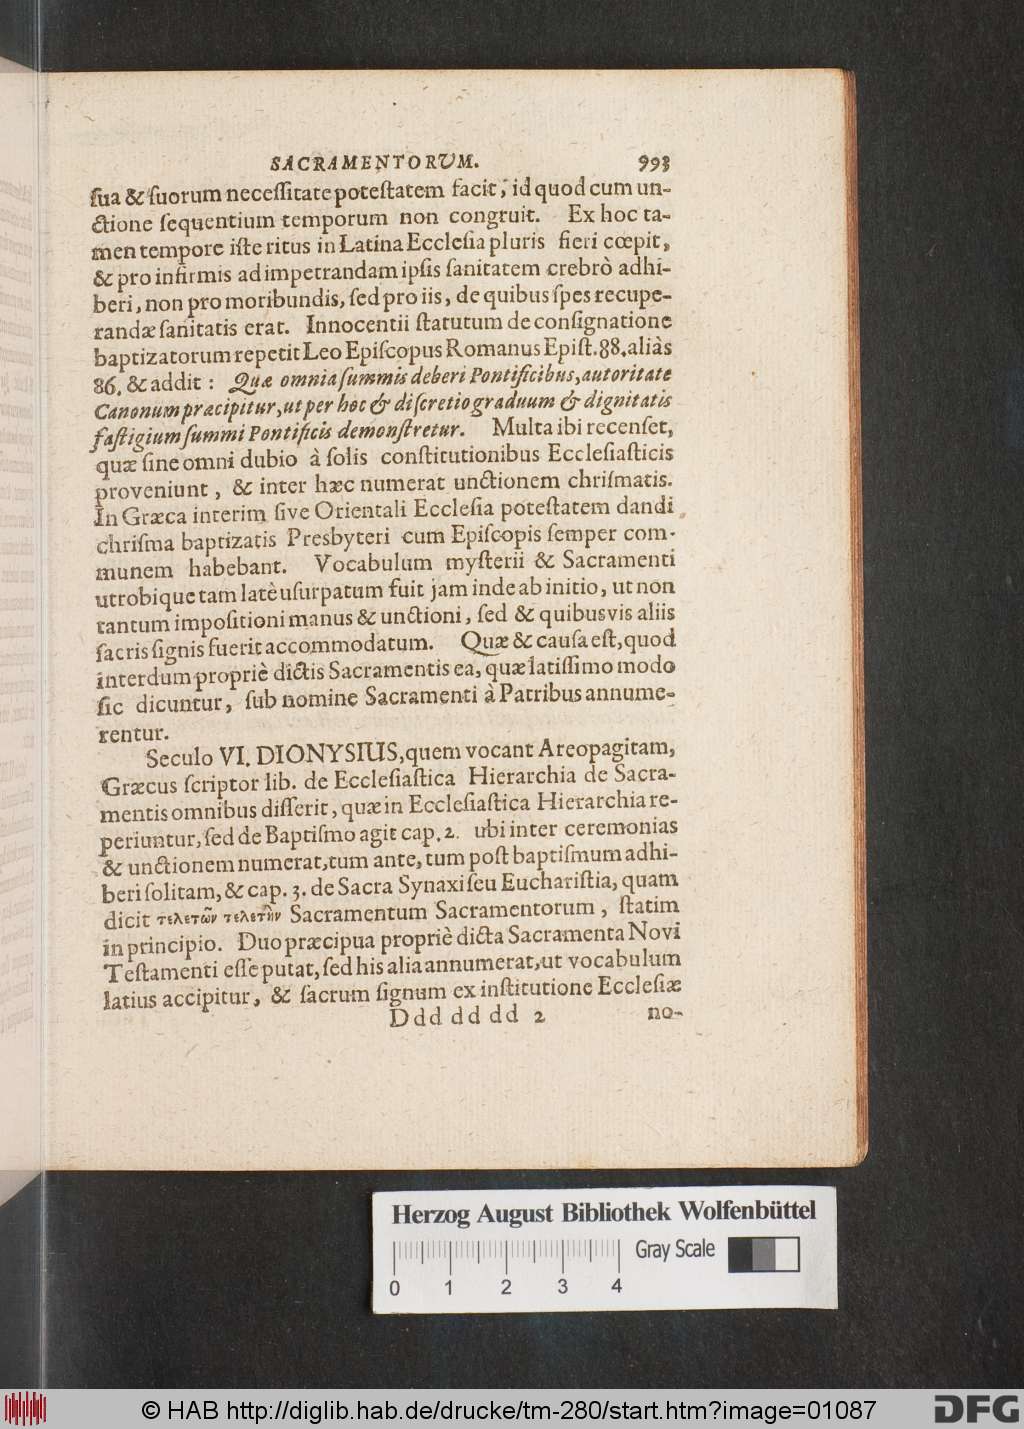 SACRAMENTORUM. 993
ſua & ſuorum neceſſitate poteſtatem facit, id quod cum un-
ctione ſequentium temporum non congruit. Ex hoc ta-
men tempore iſte ritus in Latina Eccleſia pluris fieri cœpit,
& pro infirmis ad impetrandam ipſis ſanitatem crebrò adhi-
beri, non pro moribundis, ſed pro iis, de quibus ſpes recupe-
randæ ſanitatis erat. Innocentii ſtatutum de conſignatione
baptizatorum repetit Leo Epiſcopus Romanus Epiſt. 88. aliàs
86. & addit: Quæ omnia ſummis deberi Pontificibus, autoritate
Canonum præcipitur, ut per hoc & diſcretio graduum & dignitatis
faſtigium ſummi Pontificis demonſtretur. Multa ibi recenſet,
quæ ſine omni dubio à ſolis conſtitutionibus Eccleſiaſticis
proveniunt, & inter hæc numerat unctionem chriſmatis.
In Græca interim ſive Orientali Eccleſia poteſtatem dandi
chriſma baptizatis Presbyteri cum Epiſcopis ſemper com-
munem habebant. Vocabulum myſterii & Sacramenti
utrobique tam latè uſurpatum fuit jam inde ab initio, ut non
tantum impoſitioni manus & unctioni, ſed & quibusvis aliis
ſacris ſignis fuerit accommodatum. Quæ & cauſa eſt, quod
interdum propriè dictis Sacramentis ea, quæ latiſſimo modo
ſic dicuntur, ſub nomine Sacramenti à Patribus annume-
rentur.
Seculo VI. DIONYSIUS, quem vocant Areopagitam,
Græcus ſcriptor lib. de Eccleſiaſtica Hierarchia de Sacra-
mentis omnibus diſſerit, quæ in Eccleſiaſtica Hierarchia re-
periuntur, ſed de Baptiſmo agit cap. 2. ubi inter ceremonias
& unctionem numerat, tum ante, tum poſt baptiſmum adhi-
beri ſolitam, & cap. 3. de Sacra Synaxi ſeu Euchariſtia, quam
dicit τελετῶν τελετὴν Sacramentum Sacramentorum, ſtatim
in principio. Duo præcipua propriè dicta Sacramenta Novi
Teſtamenti eſſe putat, ſed his alia annumerat, ut vocabulum
latius accipitur, & ſacrum ſignum ex inſtitutione Eccleſiæ
Ddd dd dd 2 no-
Herzog August Bibliothek Wolfenbüttel
Gray Scale
0 1 2 3 4
© HAB http://diglib.hab.de/drucke/tm-280/start.htm?image=01087
DFG